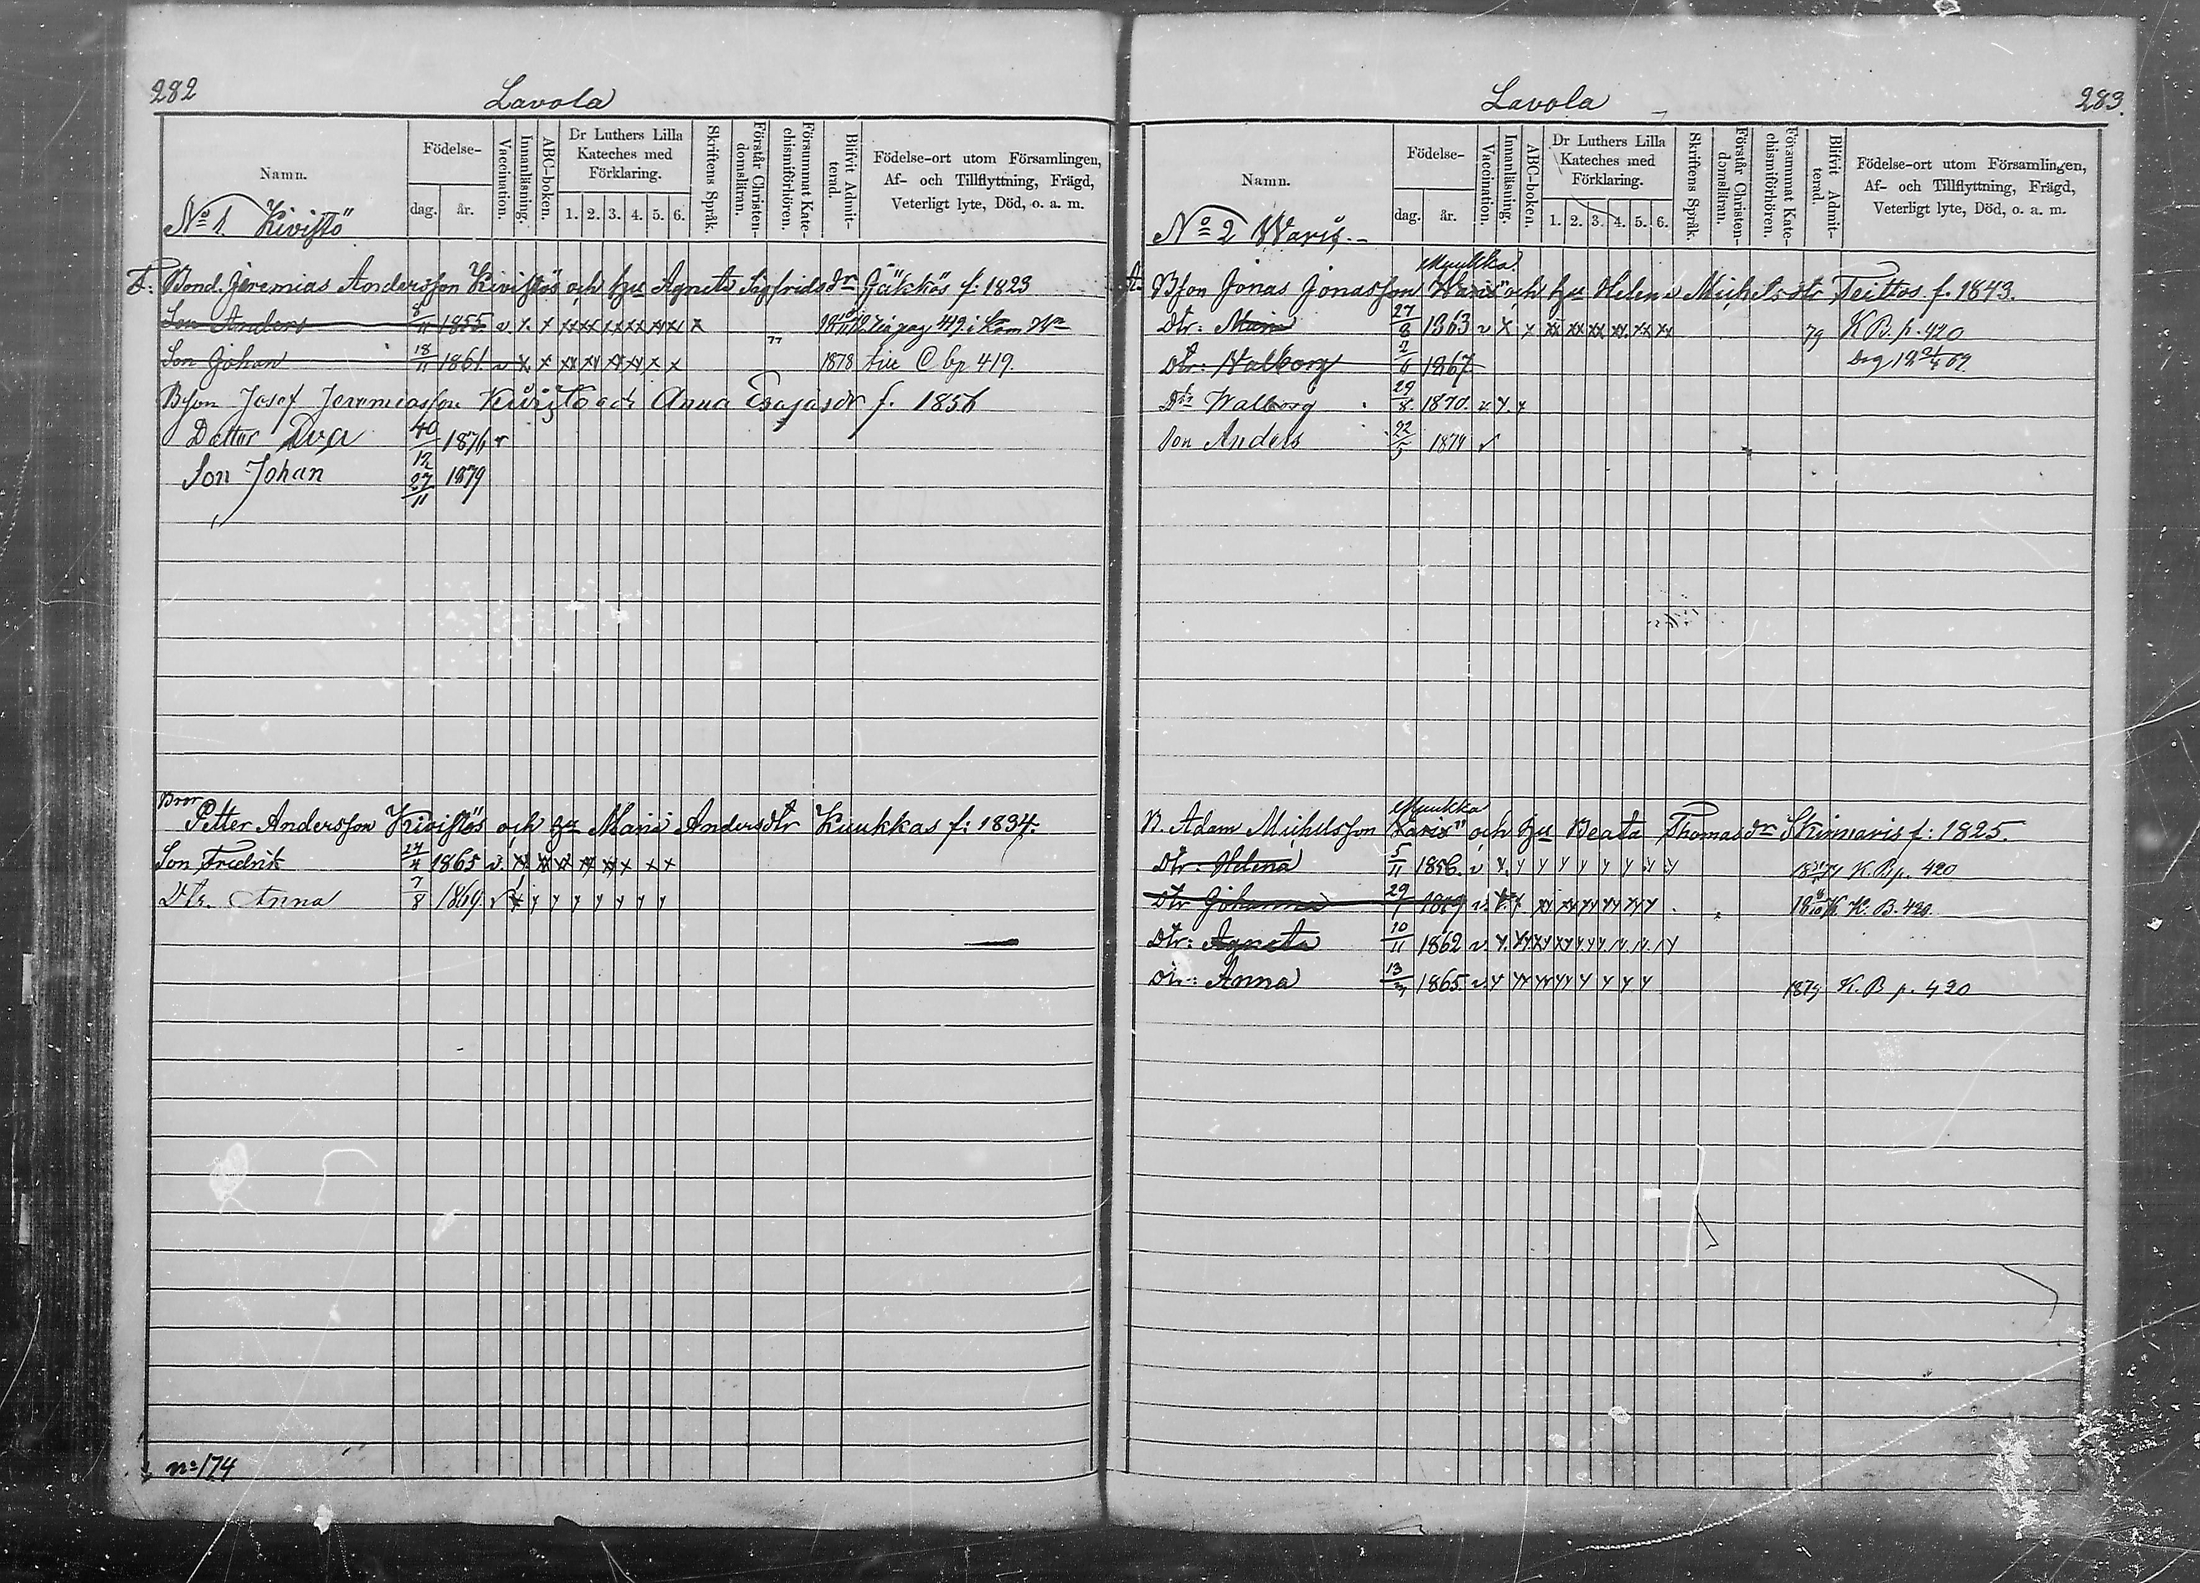 282
Lavola
Namn.
Födelse-
dag.
år.
Vaccination.
Innanläsning.
ABC-boken.
Dr Luthers Lilla Kateches med Förklaring.
1. 2. 3. 4. 5. 6.
Skriftens Språk.
Förstår Christen-domsläran.
Försummat Kate-chismiförhören.
Blifvit Admit-terad.
Födelse-ort utom Församlingen,
Af- och Tillflyttning, Frägd,
Veterligt lyte, Död, o. a. m.
No 1. Kivistö
Bond. Jeremias Andersson Kivistös och hu Agneta Sigfridsdr Jäkkös f: 1823
Son Anders 8/11 1855. v x x xx xx xx xx xx xx x
Son Johan 18/11 1861. v x x xx xx xx xx x x 1878 419.
Bson Josef Jeremiasson Kivistö och Anna Esajasdr f. 1856
Dotter Eva 1876 v
Son Johan 27/11 1879
Bror
Petter Andersson Kivistös och hu Maria Andersdtr Kuukkas f: 1834.
Son Fredrik 24/4 1865 v. x x x x x x x x
Dtr. Anna 7/8 1869 v x y y y y y y y
no 174
Lavola
283.
Namn.
Födelse-
dag.
år.
Vaccination.
Innanläsning.
ABC-boken.
Dr Luthers Lilla Kateches med Förklaring.
1. 2. 3. 4. 5. 6.
Skriftens Språk.
Förstår Christen-domsläran.
Försummat Kate-chismiförhören.
Blifvit Admit-terad.
Födelse-ort utom Församlingen,
Af- och Tillflyttning, Frägd,
Veterligt lyte, Död, o. a. m.
No 2 Waris.
Muukka
Bson Jonas Jonasson Waris" och hu Helena Michelsdtr Teittos f. 1843.
Dtr: Maria 27/8 1863 v x x xx xx xx xx xx xx 79 K B. p. 420
Dtr: Walborg 2/11 1867
Dtr Walborg 29/8 1870. v. y. y
Son Anders 22/5 1874 v
Muukka
B. Adam Michelsson Waris" och hu Beata Thomasdr Skinnaris f: 1825.
Dtr: Helena 5/11 1856. v y. y y y y y y y y K. B p. 420
Dtr Johanna K. B. 420.
Dtr: Agneta 10/11 1862 v
Dtr: Anna 13/7 1865. v. y 1879 K. B p. 420